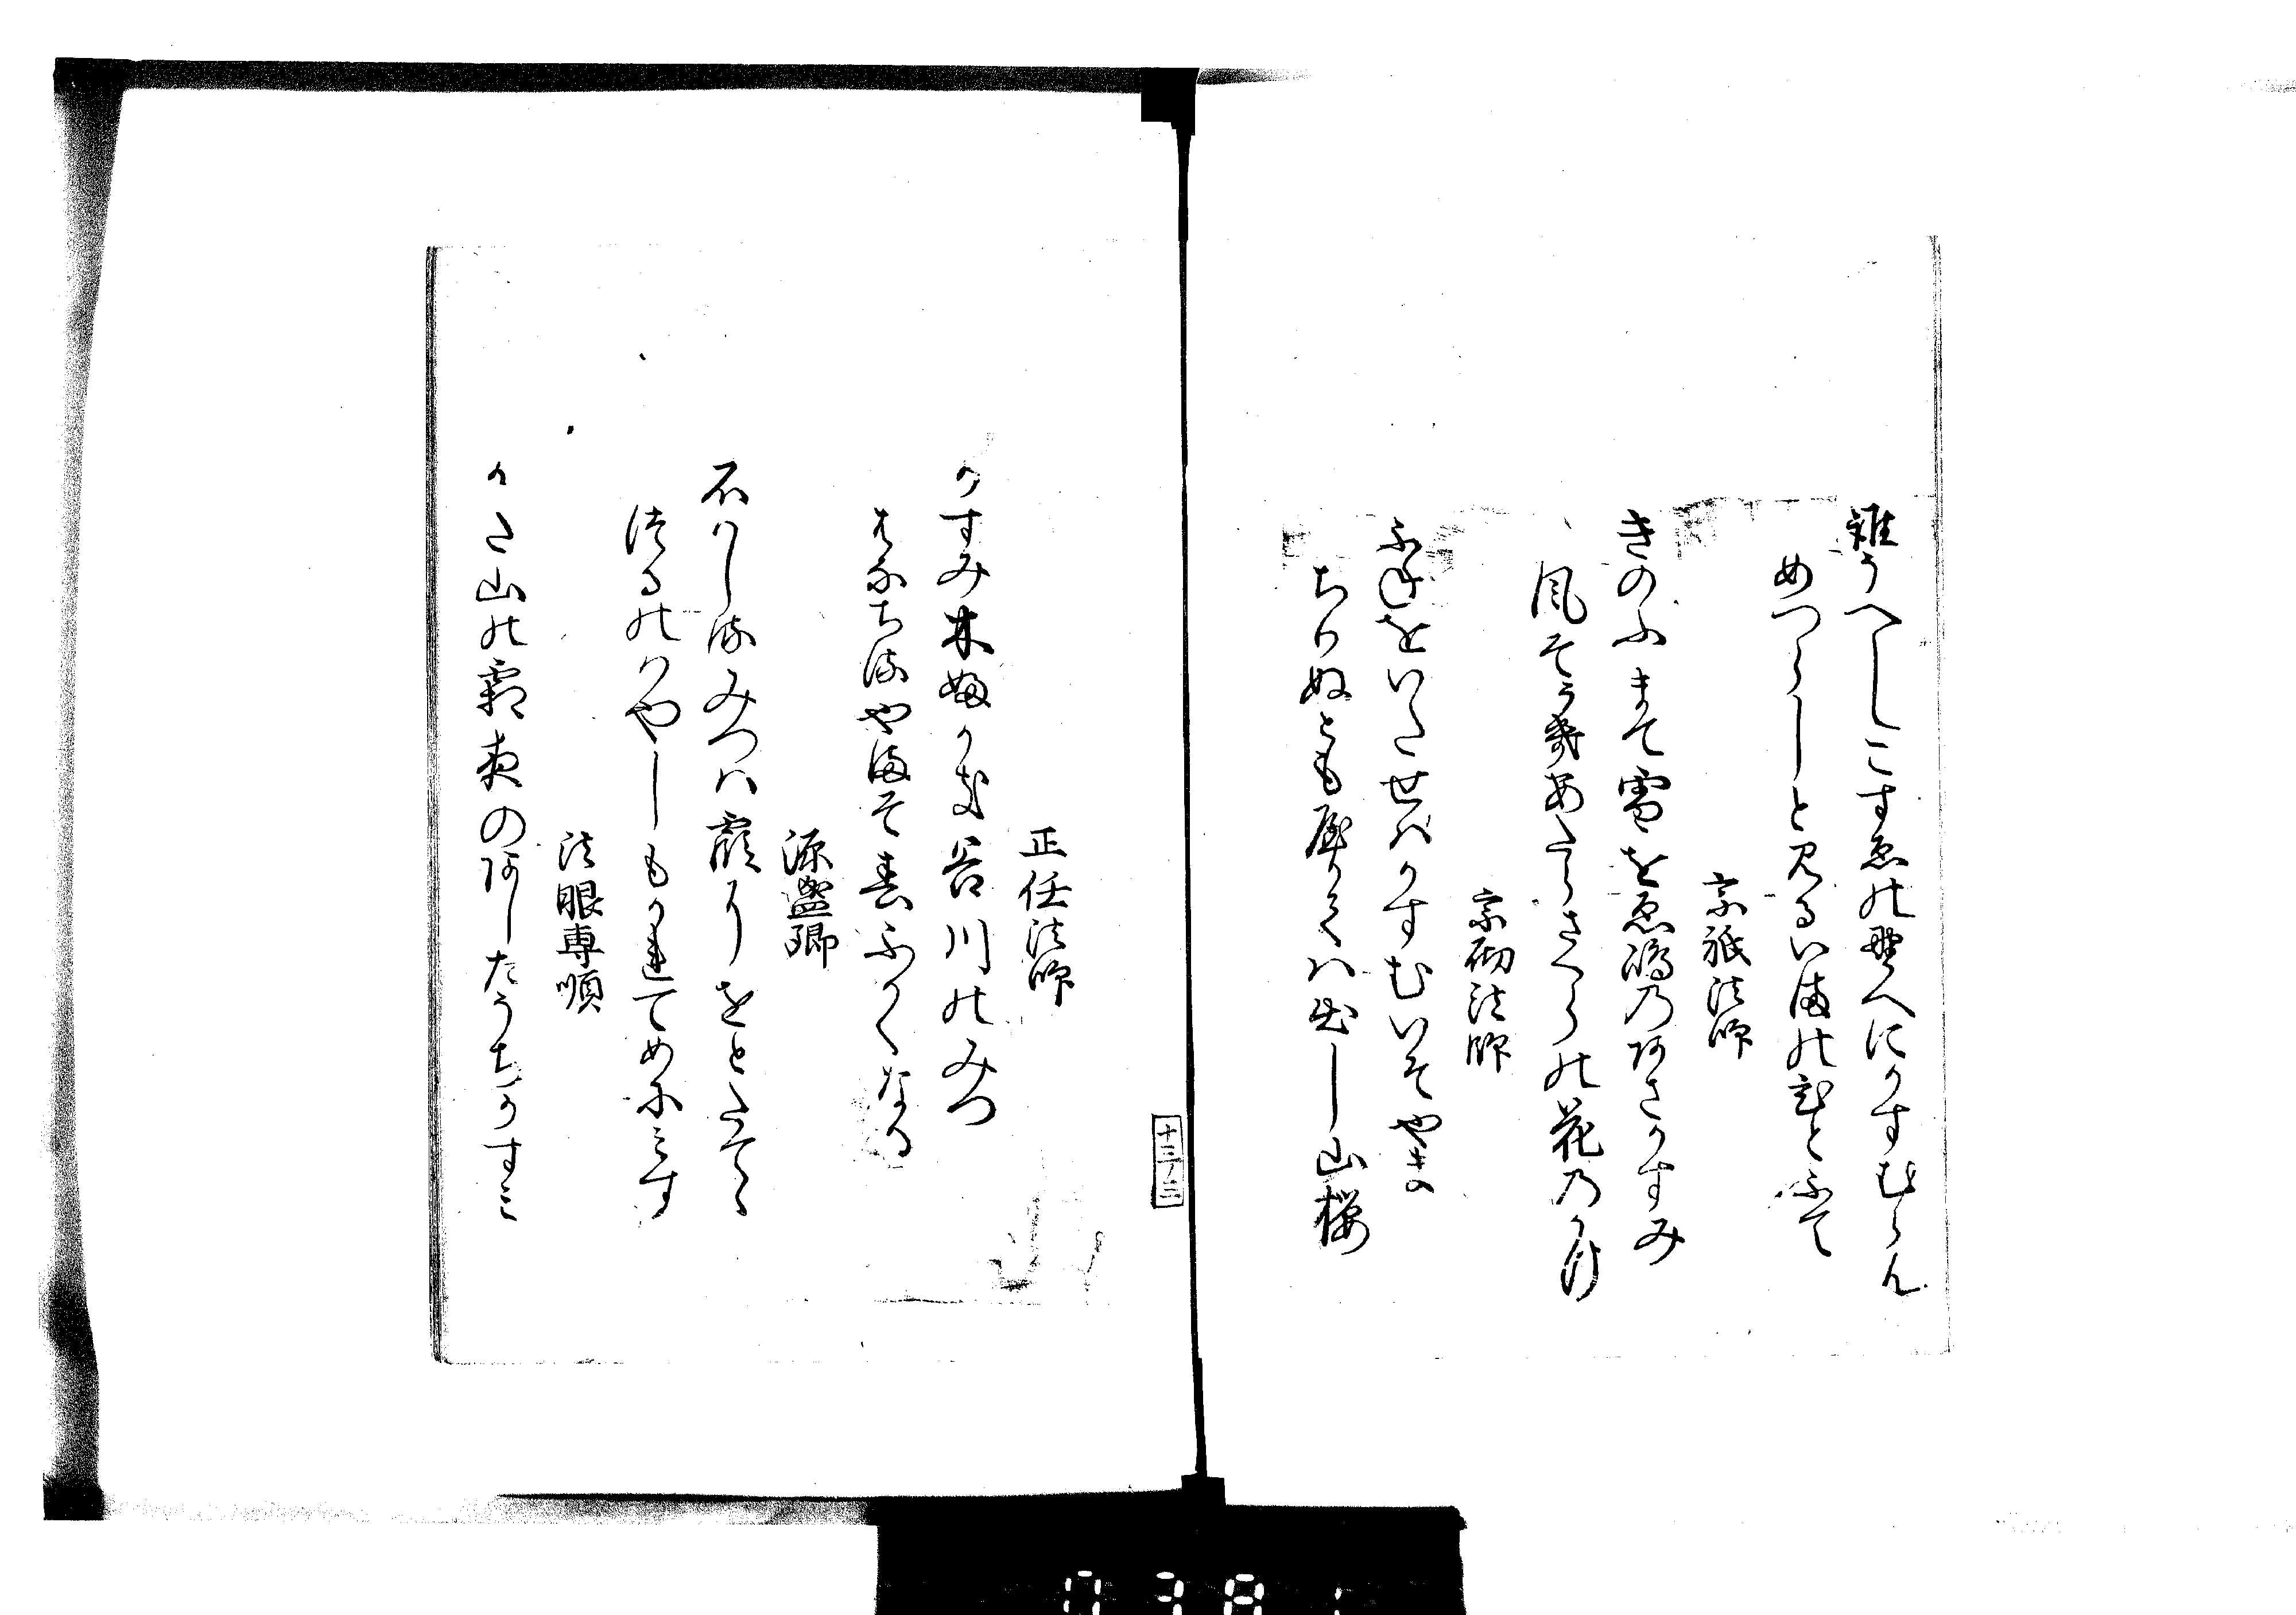 誰うへしこすゑの野へにかすむらん
めつらしと見るいまのひとふて
宗祇法師
きのふまて雪をゑしまのあさかすみ
風そうきあたらさくらの花のかけ
宗砌法師
ふねをいたせはかすむいそやま
ちりぬとも屋かては出し山桜
正任法師
かすみ木ふかき谷川のみつ
はなちるやまそ春ふかくなる
源盛卿
石はしるみつは霞にをとたてゝ
はるのはやしもかれてめにみす
法眼専順
かた山の霜夜のあしたうちかすみ
十三ノ三